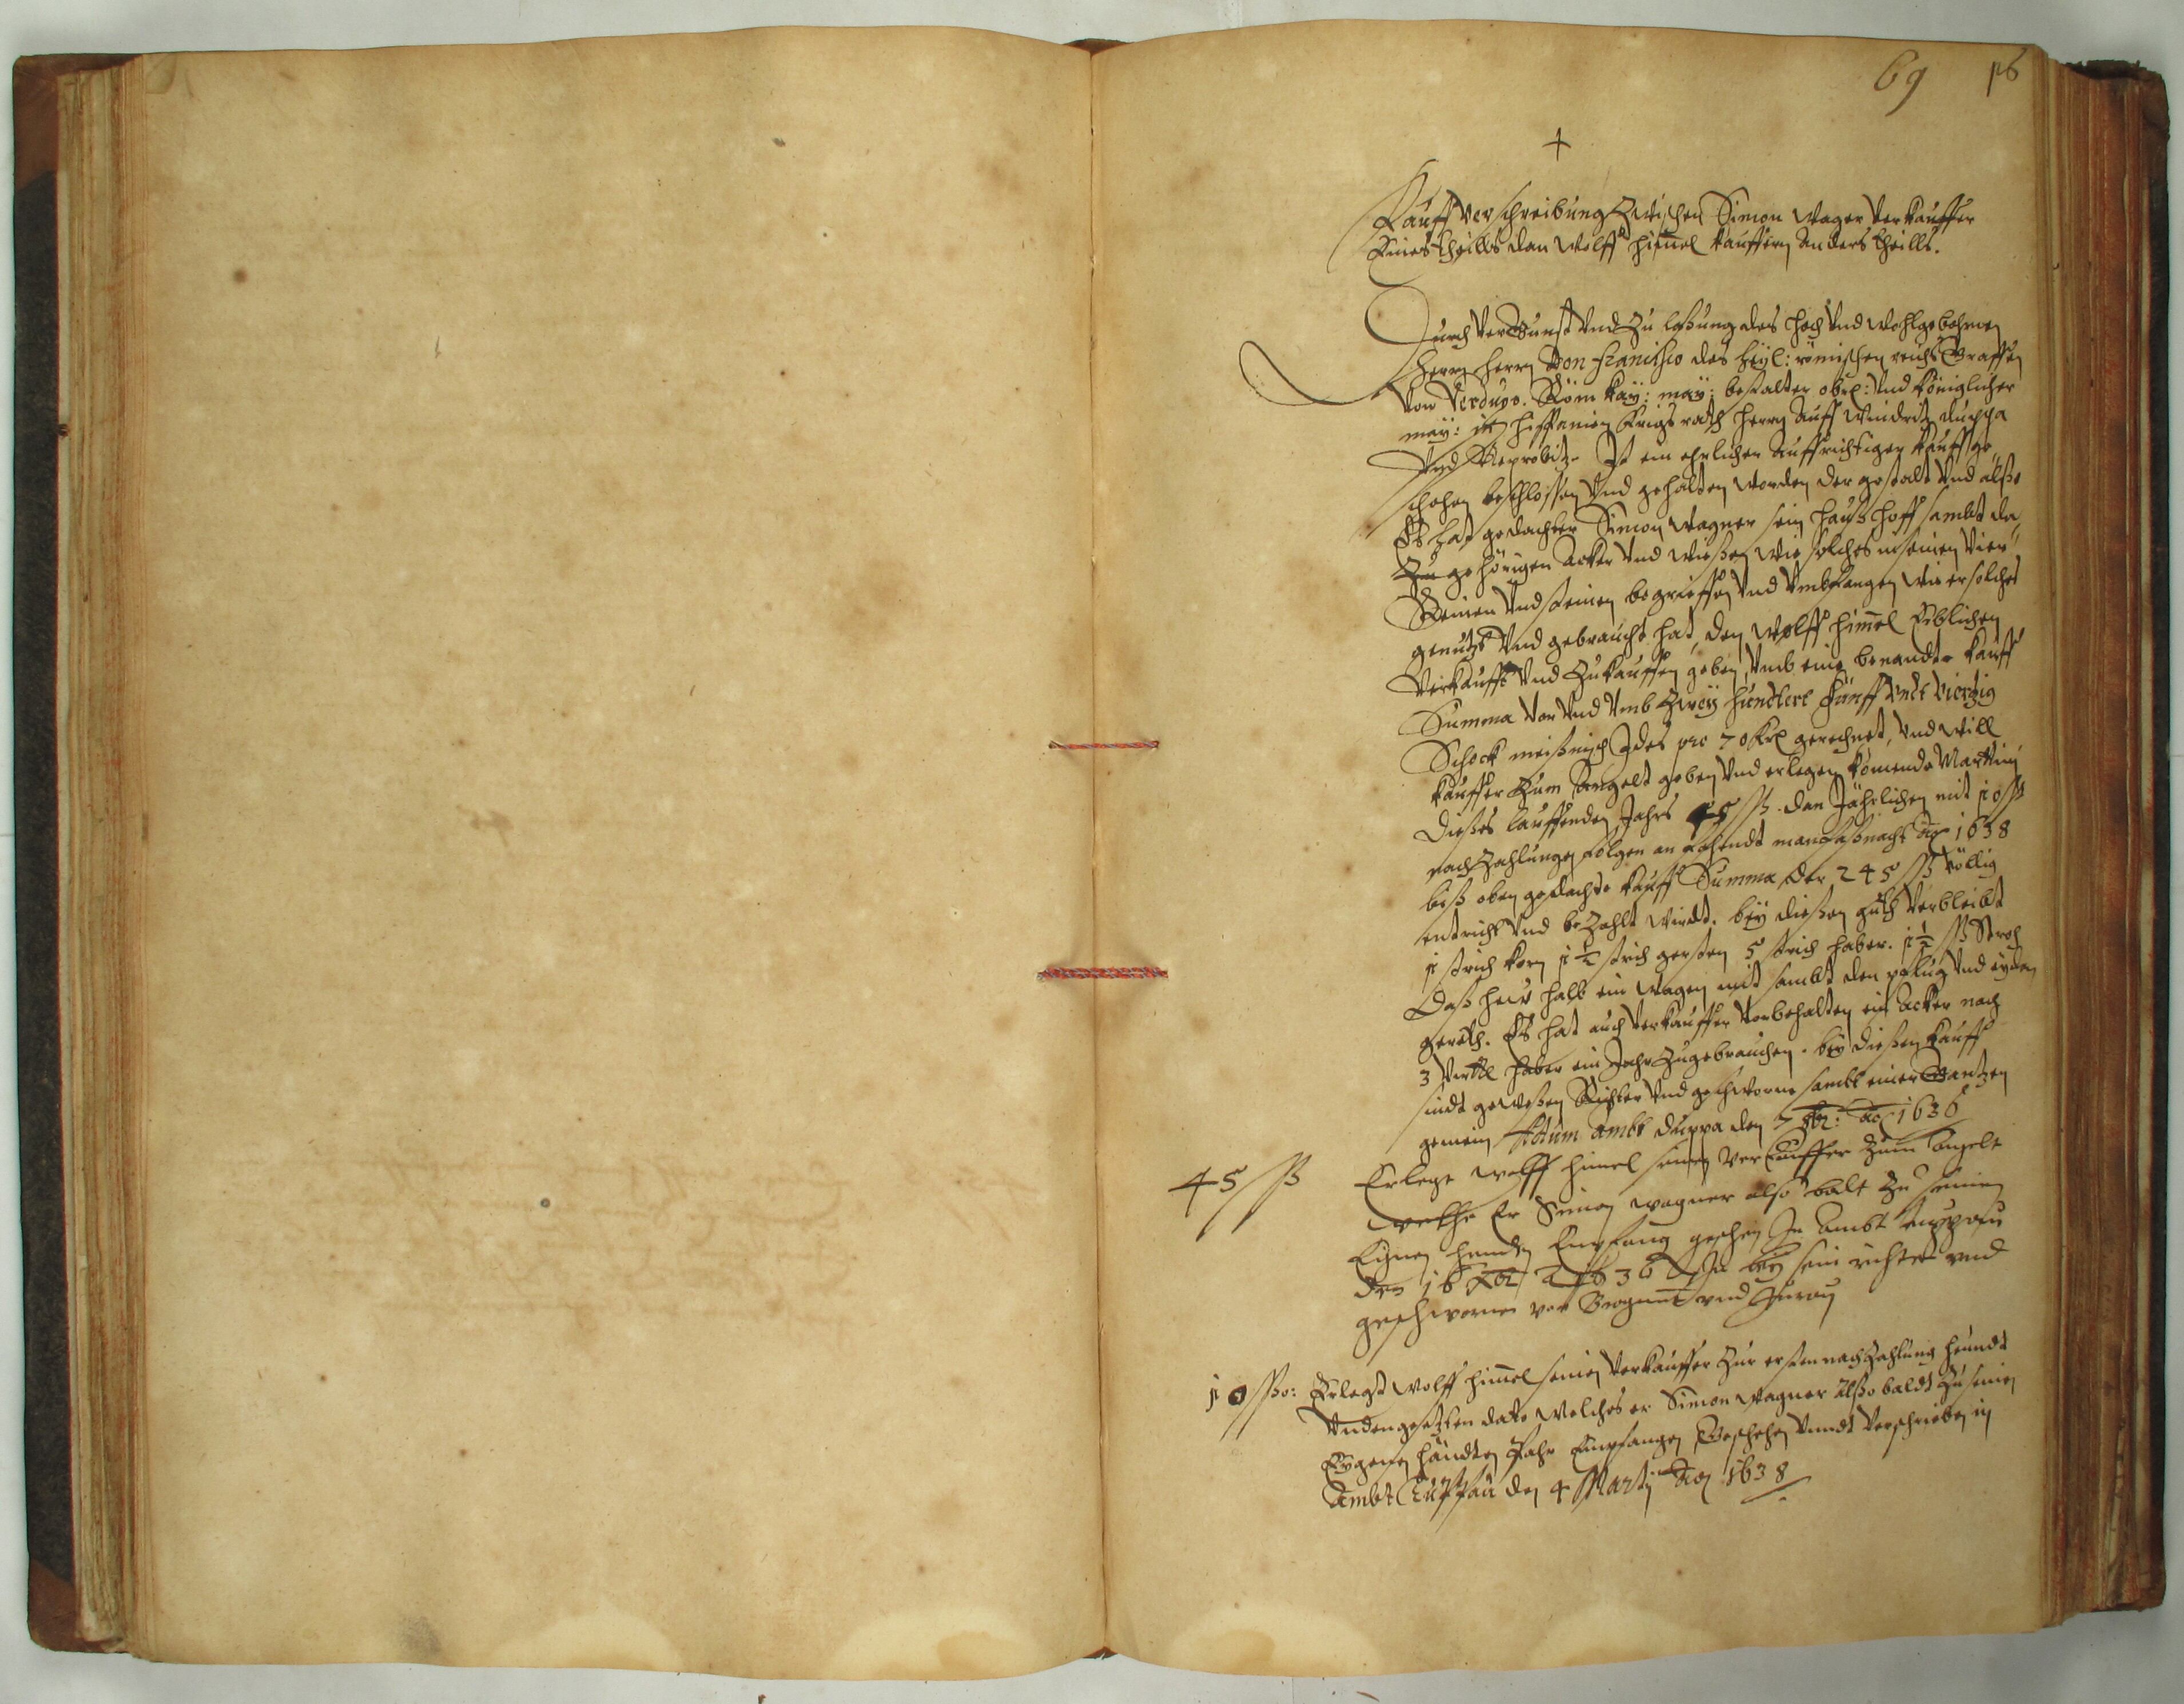 69 p6
+
Kauff Verschreibung Zwischen Simon Wagner Verkauffer
Eines theills dan Wolff Him̄el kauffern anders theills.
Durch Vergunst Vnd Zu laßung des hoch Vnd wohlgebohrnen
Herrn Herrn Don Francisco des Heyl: römischen reichs Graffen
Von Verdugo. Röm kay: may: bestalter obr: Vnd königlicher
may: in hispanien Kriegs rath Herrn auff Duppa
Vnd Ist ein ehrlicher auffrichtiger kauff ge
schehen beschlossen Vnd gehalten worden der gestalt Vnd alßo
Es hat gedachter Simon Wagner sein hauß hoff sambt da
Zu gehörigen acker Vnd wießen wie solches in seinen Vier
Reinen Vnd steinen begrieffen Vnd Vmbfangen wie er solches
genutzt Vnd gebraucht hat, den Wolff him̄el Erblichen
Verkaufft Vnd Zukauffen geben, Vmb eine benandte kauff
Summa Vor Vnd Vmb Zwey hundtert fünff Vndt Viertzig
Schock meißnisch Jdes pro 70 kr gerechnet, Vnd will
kauffer Zum angelt geben Vnd erlegen komende Martini
dießes lauffenden Jahrs 45 ß. dan Jährlichen mit 10 ß
nach Zahlungen folgen an fahendt man faßnacht Ao 1638
biß oben gedachte kauff Summa der 245 ß Völlig
entricht Vnd beZahlt wirdt. bey dießen guth Verbleibt
1 strich korn 1½ strich gersten 5 strich haber. 1½ ß Stroh
Daß heu halb ein wagen mit sambt den pflug Vnd eyden
gereth. Es hat auch Verkauffer Vorbehalten ein acker nach
3 Virttl haber ein Jahr Zugebrauchen. bey dießen kauff
sindt geweßen Richter Vnd geschworne sambt einer Gantzen
gemein Actum ambt Duppa den 7 br: Ao 1636
45 ß Erlegt Wolff himel seinen Verkauffer Zum angelt
welche Er Simon wagner also balt Zu seinen
Eignen henden Empfang geschen In ambt Duppau
den 16 Xbr Ao 1636 In bey sein richter vnd
geschworner von vnd
10 ßo: Erlegt Wolff him̄el seinen Verkauffer Zur ersten nach Zahlung heundt
Vndengesetzten dato Welches er Simon Wagner alßo baldt Zu seinen
Eygenen händten Empfangen Geschehen Vnndt Verschrieben in
Ambt Duppau den 4 Martij Ao 1638